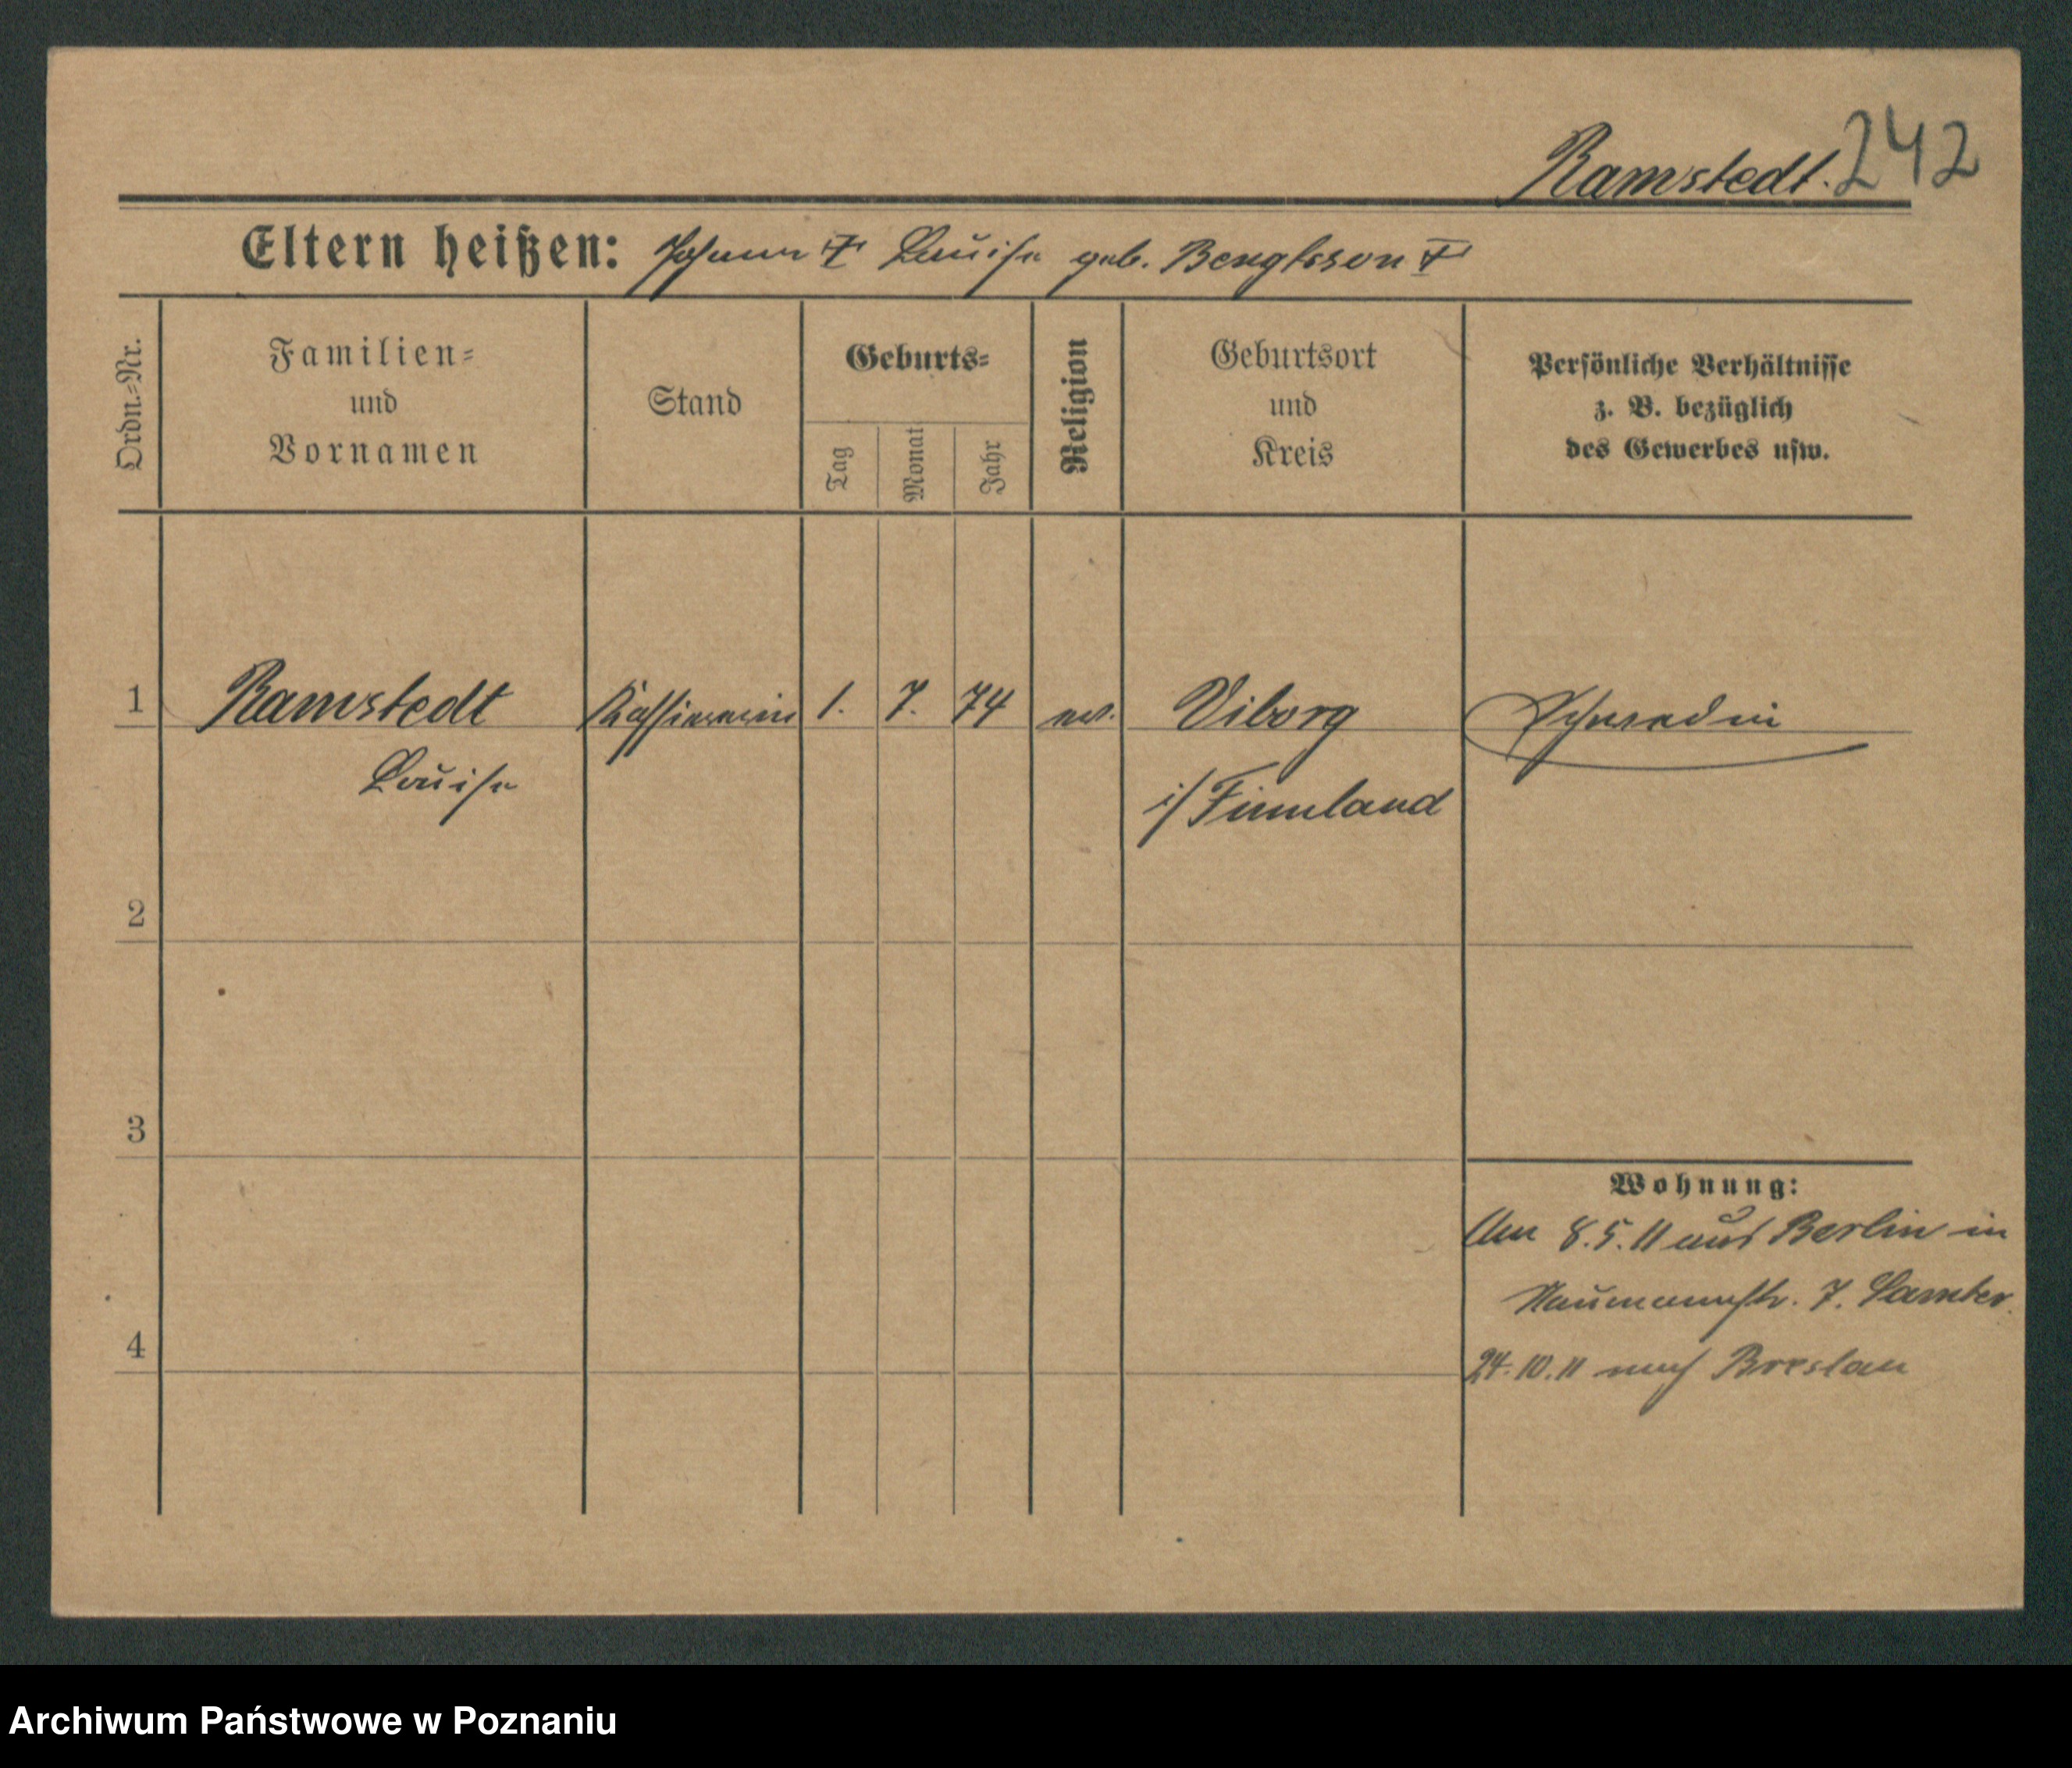 Ramstedt. 242
Eltern heißen: Johann † Louise geb. Bengtsson †
Ordn.-Nr.
Familien-
und
Vornamen
Stand
Geburts-
Tag
Monat
Jahr
Religion
Geburtsort
und
Kreis
Persönliche Verhältnisse
z. B. bezüglich
des Gewerbes usw.
1 Ramstedt Kassiererin 1. 7. 74 ev. Viborg Schwedin
Louise i/ Finnland
2
3
Wohnung:
Am 8.5.11 aus Berlin in
Naumannstr. 7.
4
24.10.11 nach Breslau
Archiwum Państwowe w Poznaniu